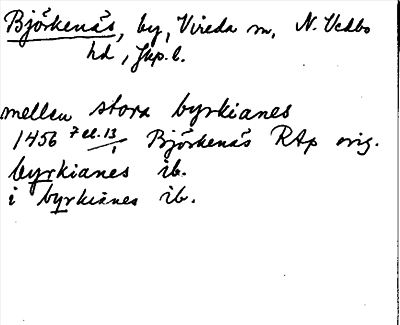 Björkenäs, by, Vireda sn, N. Vedbo
hd, Jkp. l.
mellen stora byrkianes
1456 7 el. 13/1 Björkenäs RAp orig.
byrkianes ib.
i byrkianes ib.